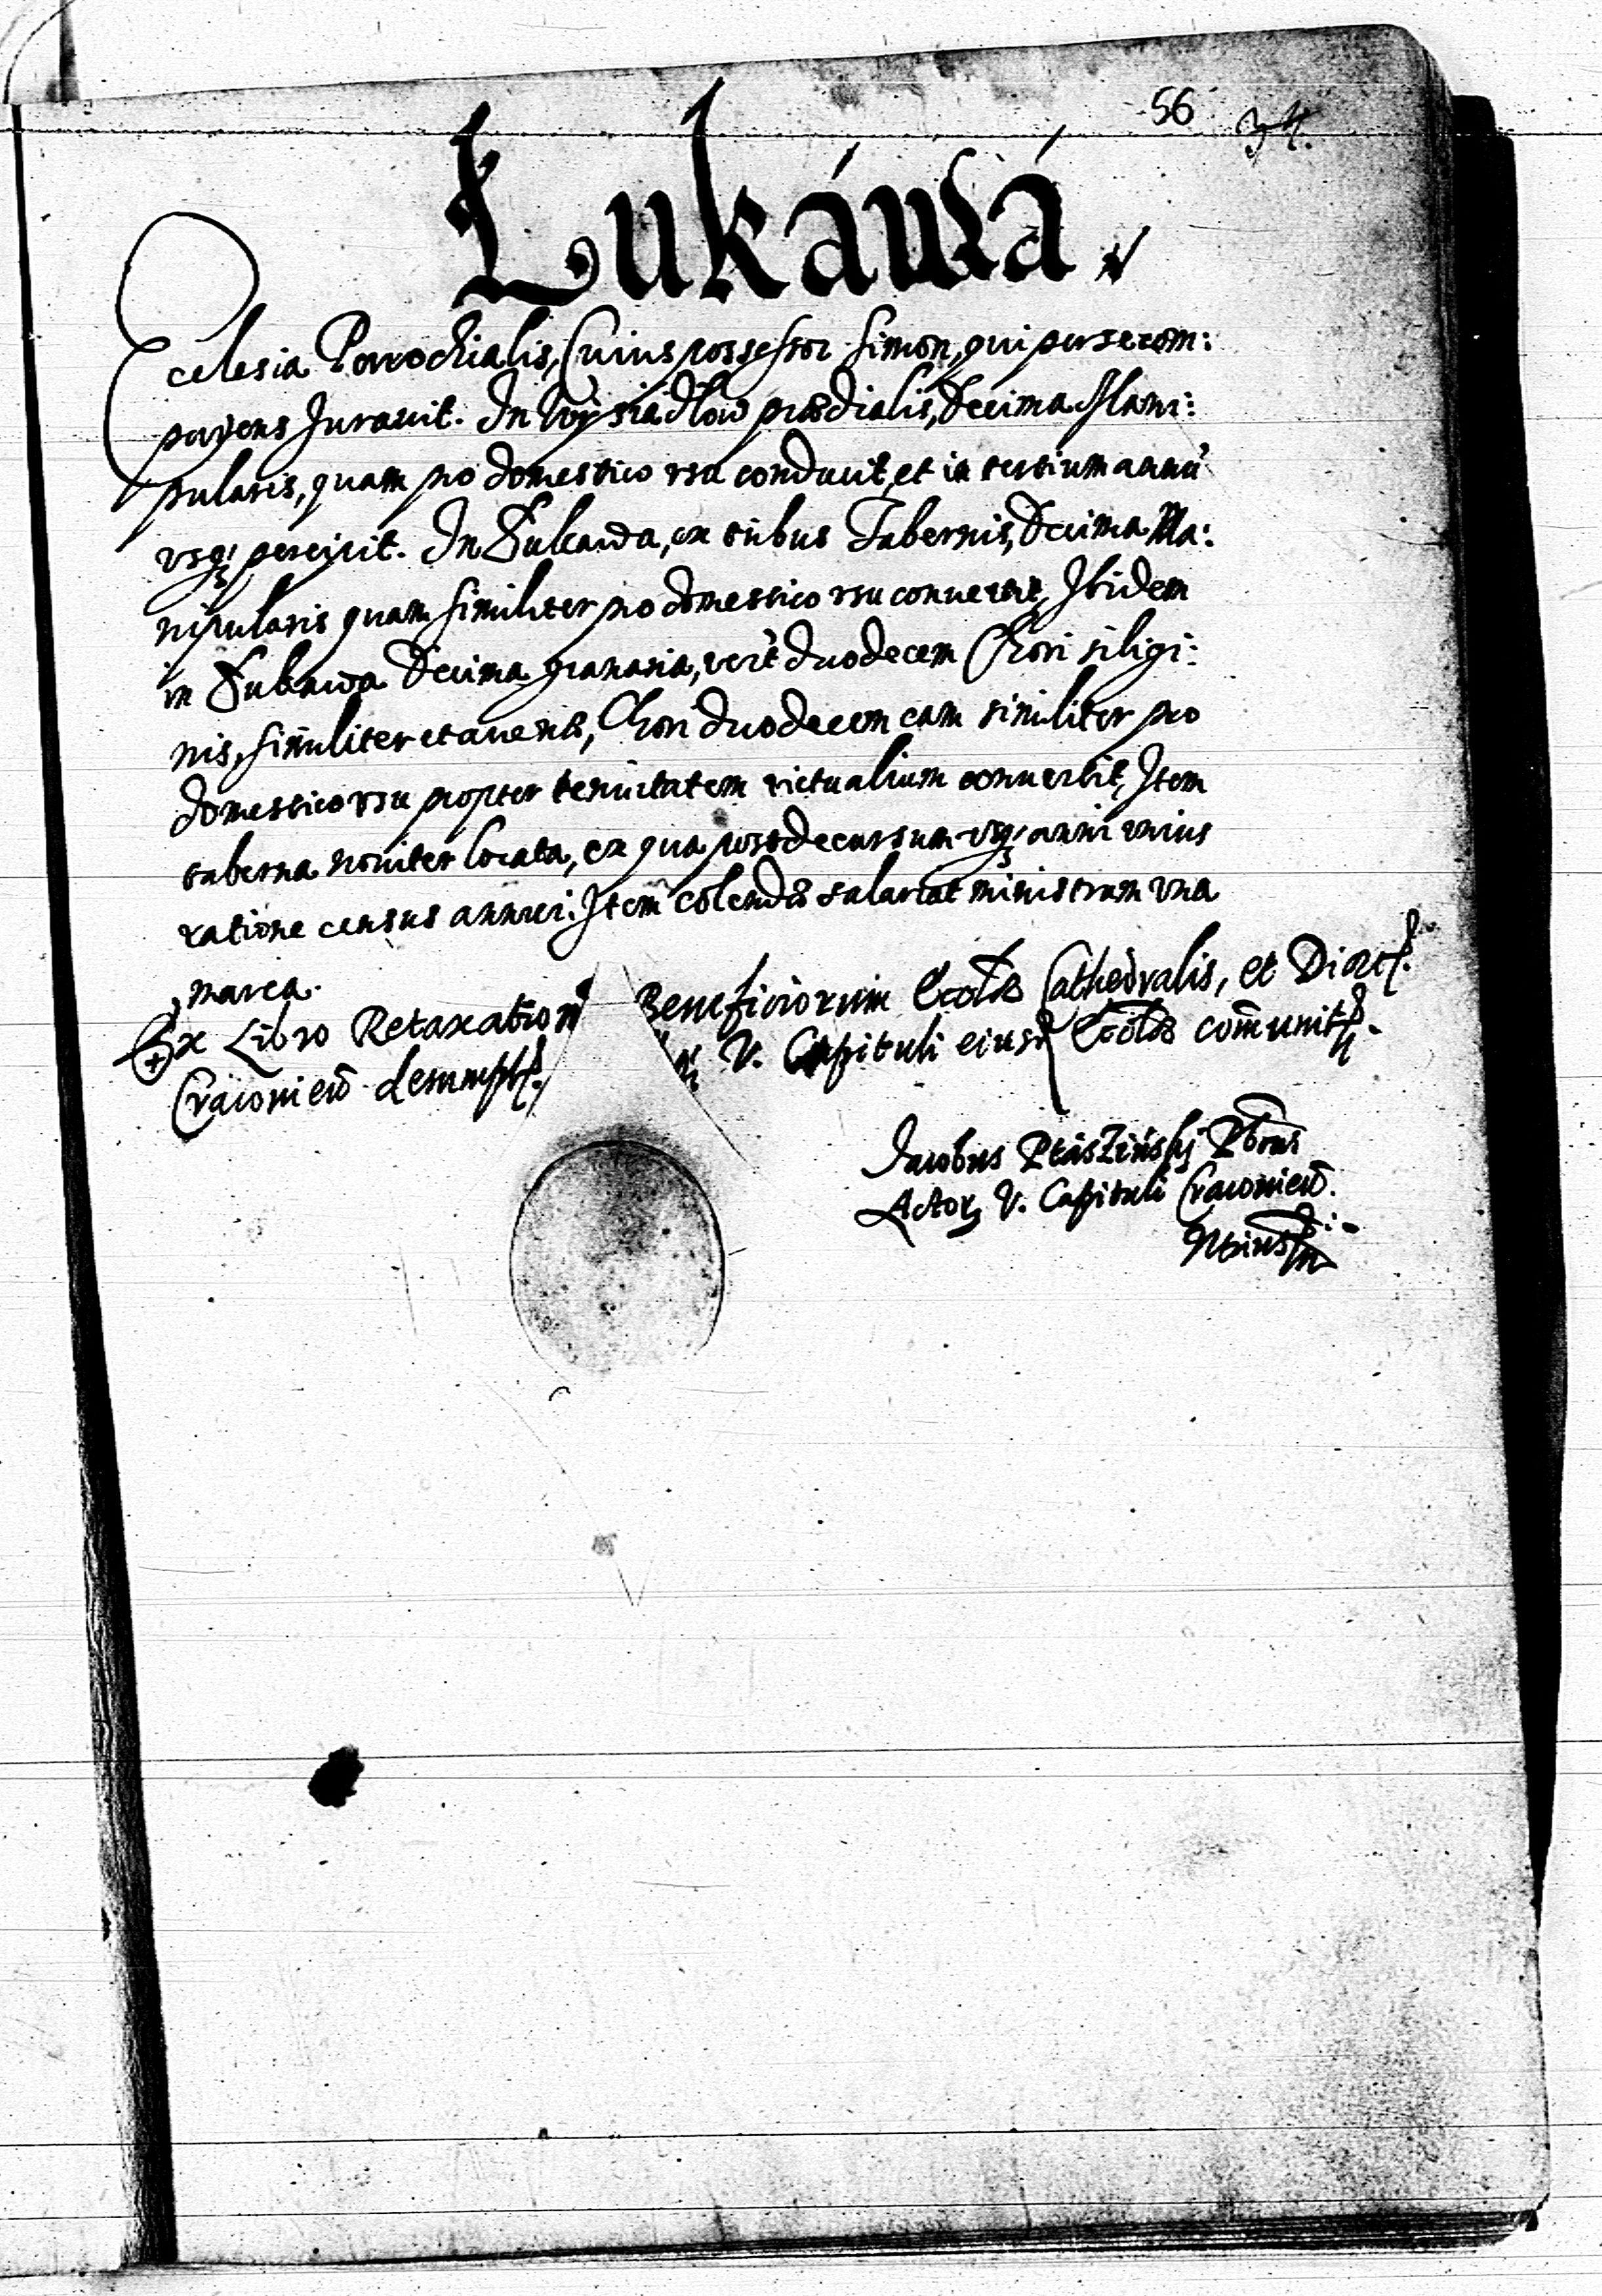 56 34.
Łukáwá.
Ecclesia Parrochialis, Cuius possessor Simon, qui per se com:
parens Jurauit. In Wysiadłow prædialis, Decima Mani:
pularis, quam pro domestico vsu conducit, et in tertium annũ
vsq; percipit. In Łukawa, ex tribus Tabernis, Decima Ma:
nipularis quam similiter pro domestico vsu conuertit, Ibidem
in Łukawa Decima granaria, verè duodecem Chori siligi:
nis, similiter et auenæ, Chori duodecem eam similiter pro
domestico vsu propter tenuitatem victualium conuertit, Item
taberna nouiter locata, ex qua post decursum vsq; anni vnius
ratione census annui. Item colendæ salariat ministrum vna
marca.
Ex Libro Retaxation Beneficiorum Eccłæ Cathedralis, et Diæc
Cracouien desumpt V. Capituli eiusd Eccłæ com̃unit
Jacobus Ptaszinskj Pbr
Actor V. Capituli Cracouien.